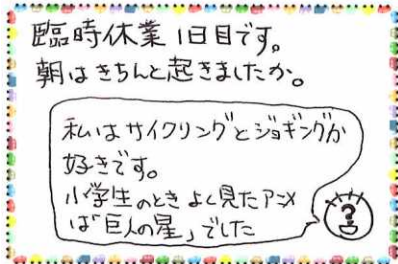 臨時休業1日目です。
朝はきちんと起きましたか。
私はサイクリングとジョギングが
好きです。
小学生のときよく見たアニメ
は「巨人の星」でした
?